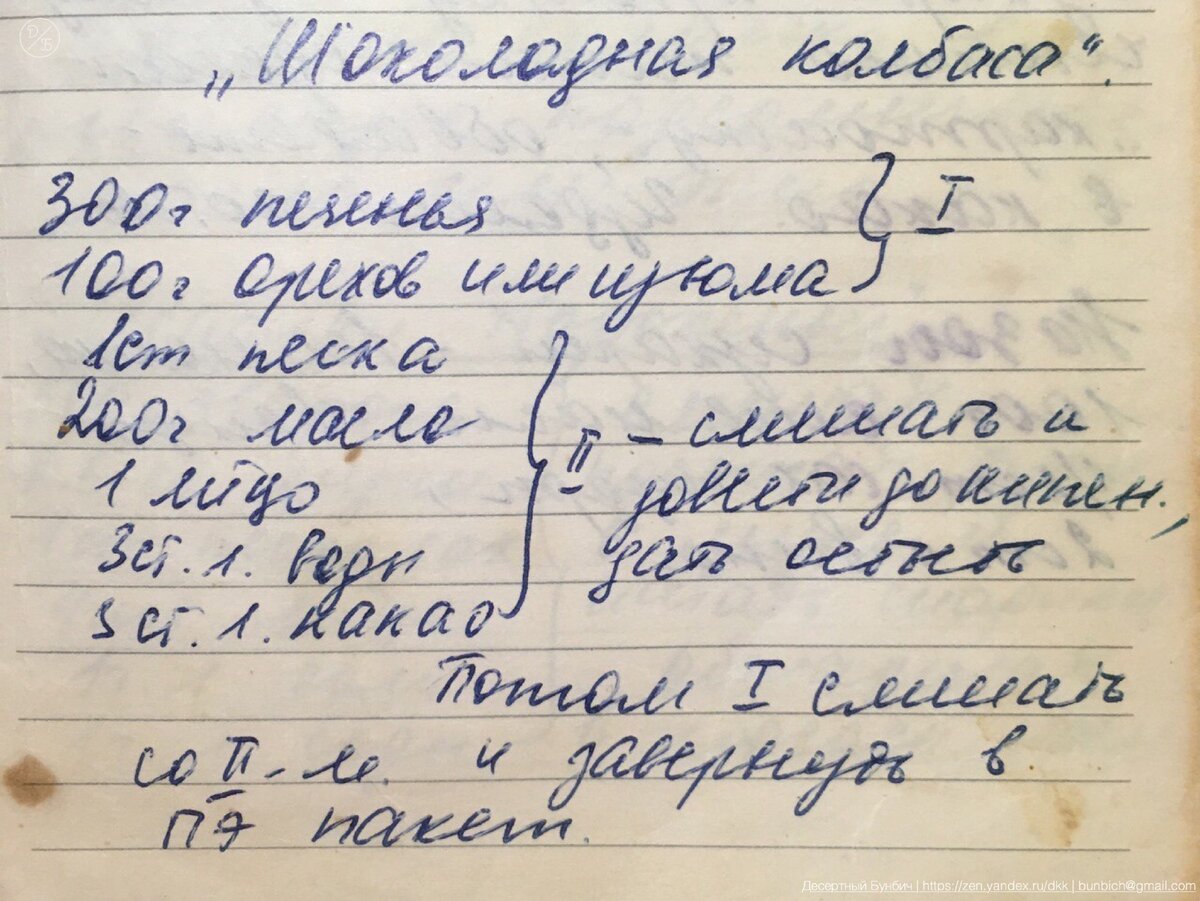 „Шоколадная колбаса".
300г печенья } I
100г орехов или изюма
1ст песка
200г масло
1 яйцо } II – смешать и
довести до кипен.,
3ст. л. воды дать остыть
3 ст. л. какао
Потом I смешать
со II-м. и завернуть в
ПЭ пакет.
Десертный Бунбич | https://zen.yandex.ru/dkk | bunbich@gmail.com